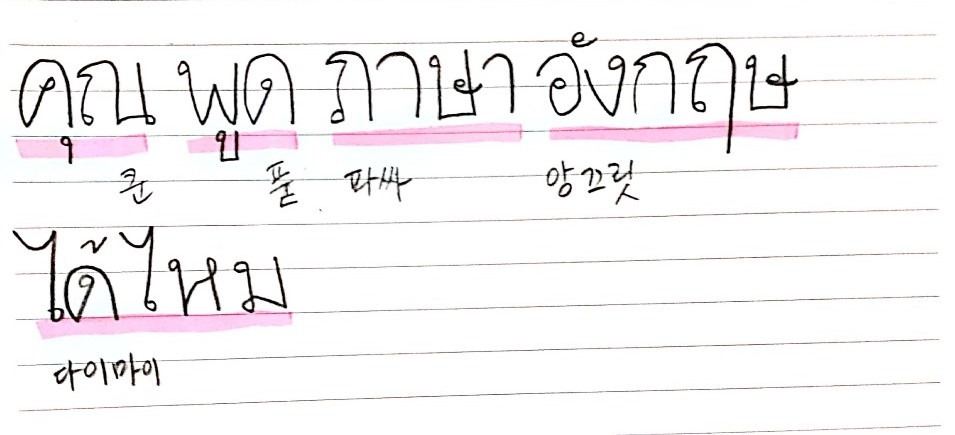 คุณ พูด ภาษา อังกฤษ
쿤 풑 파싸 앙끄릿
ได้ไหม
다이마이